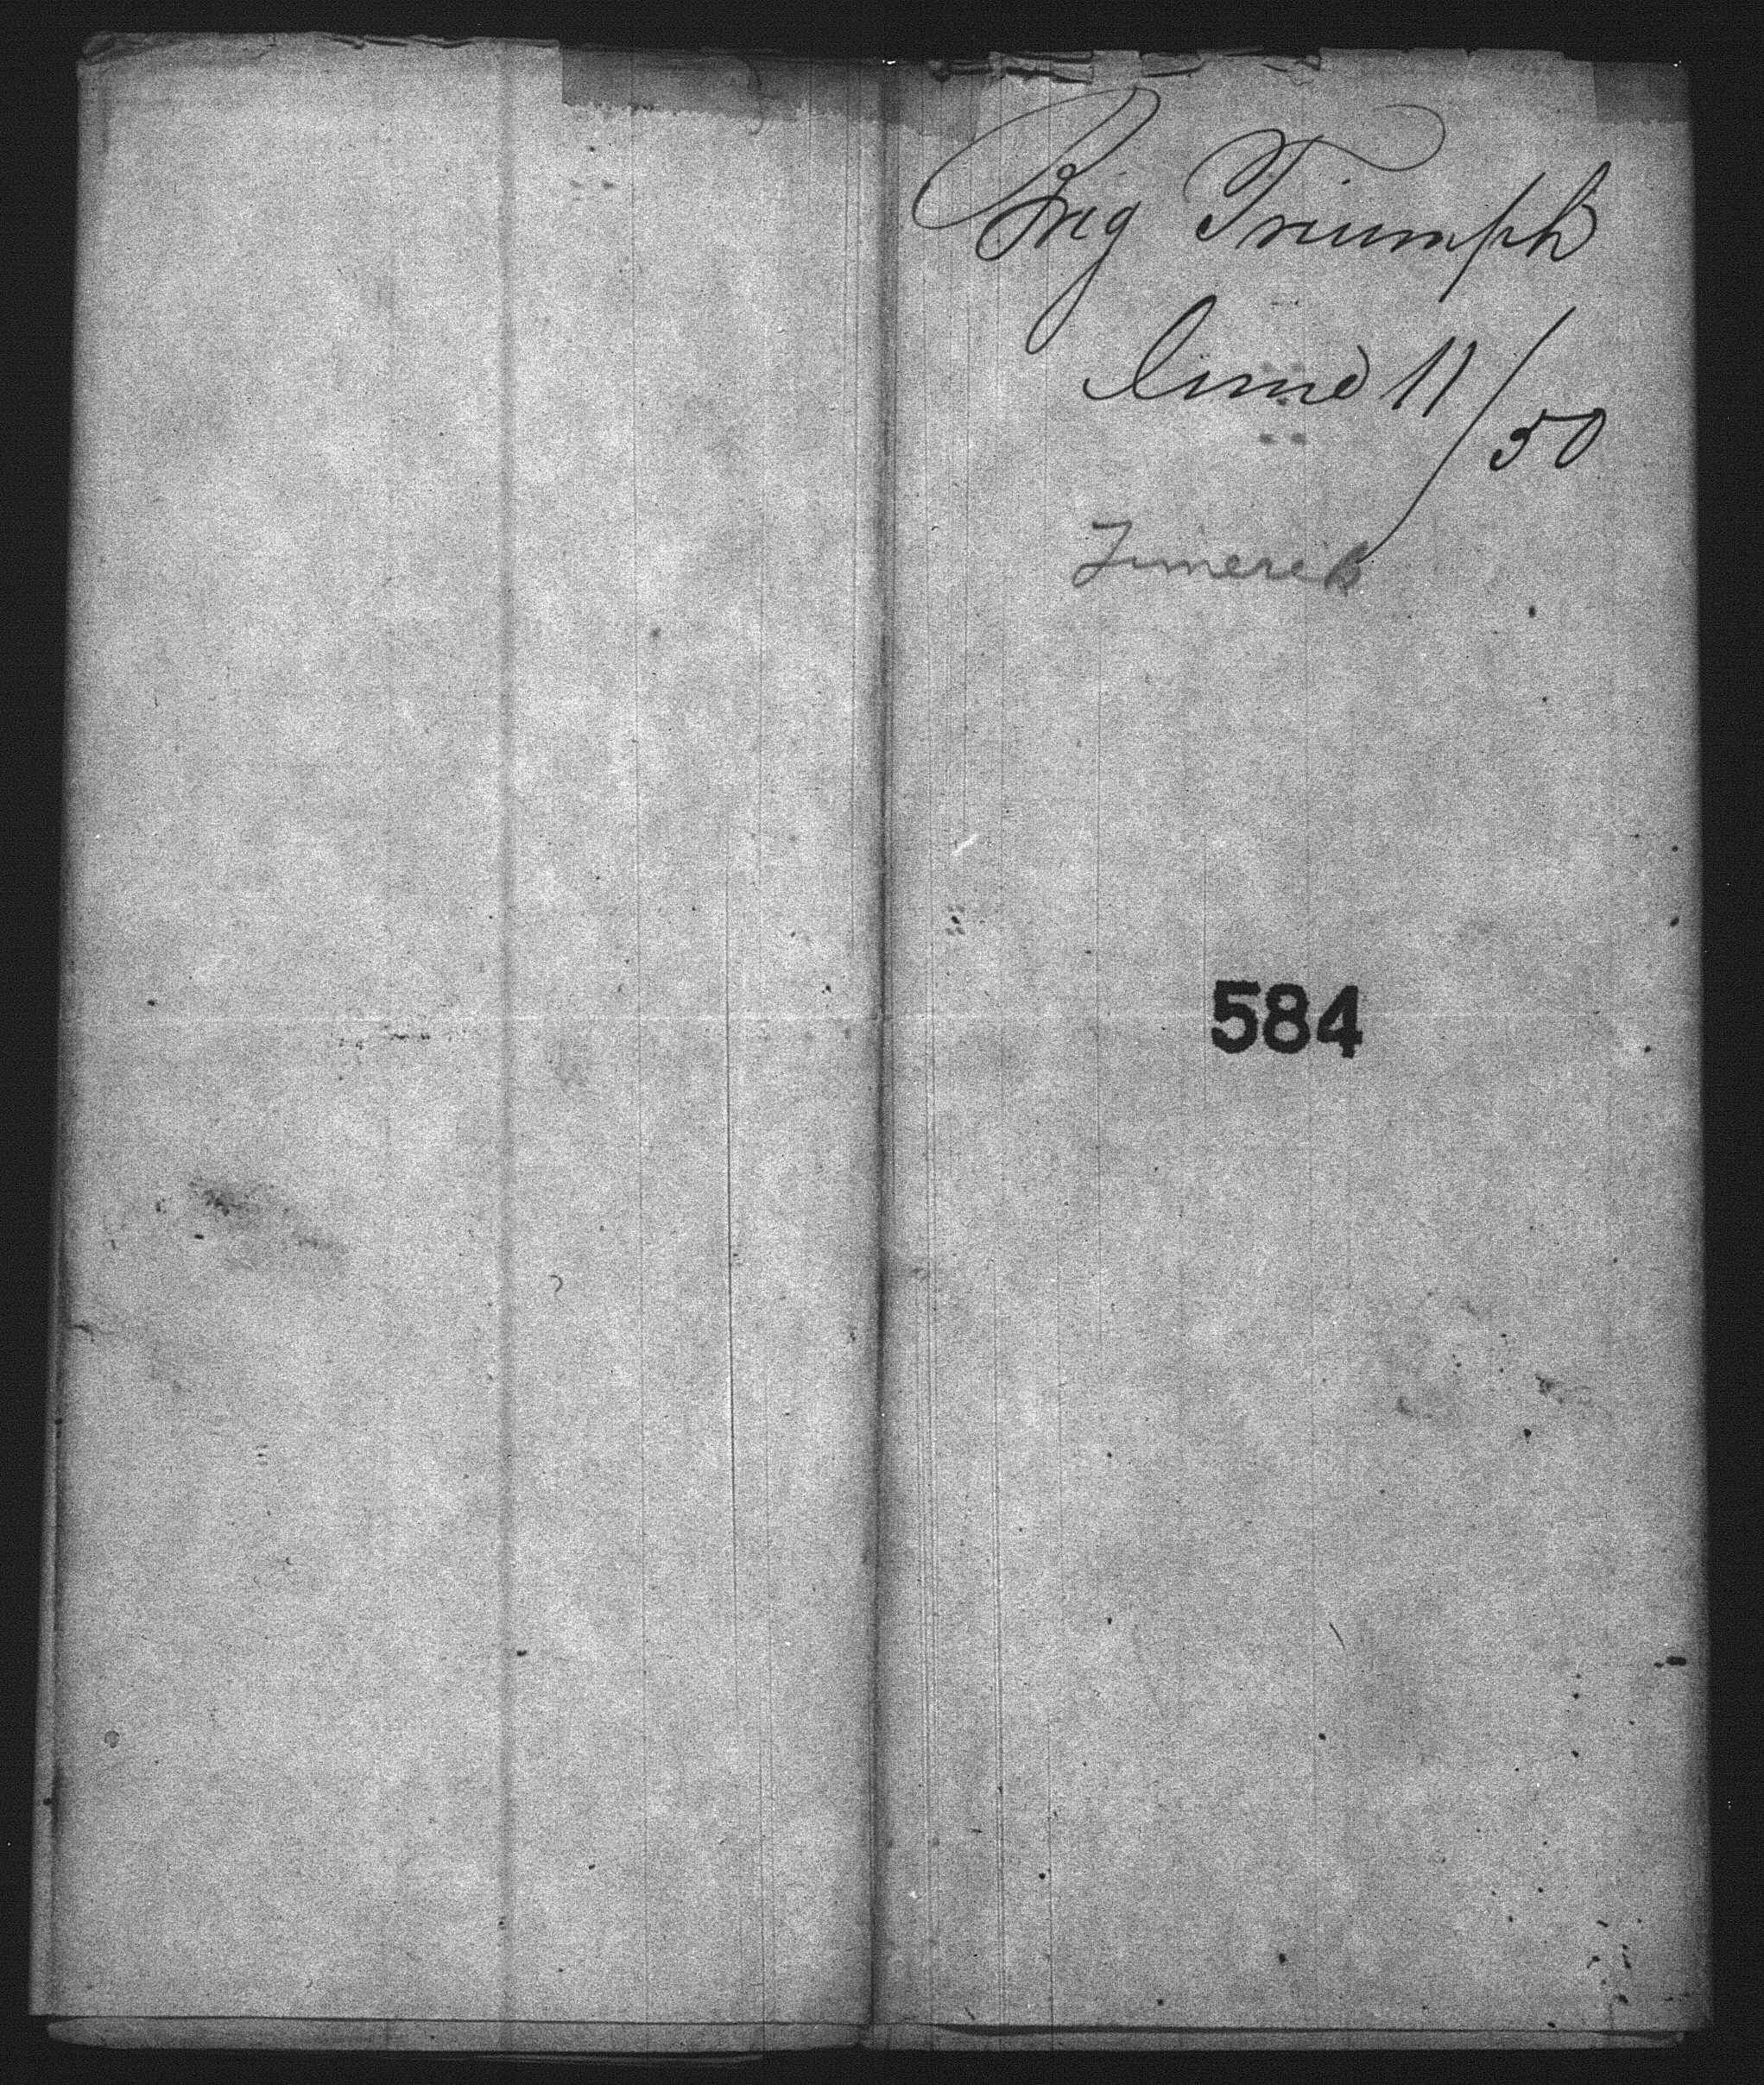 Brig Triumph
June 11/50
Limerick
584